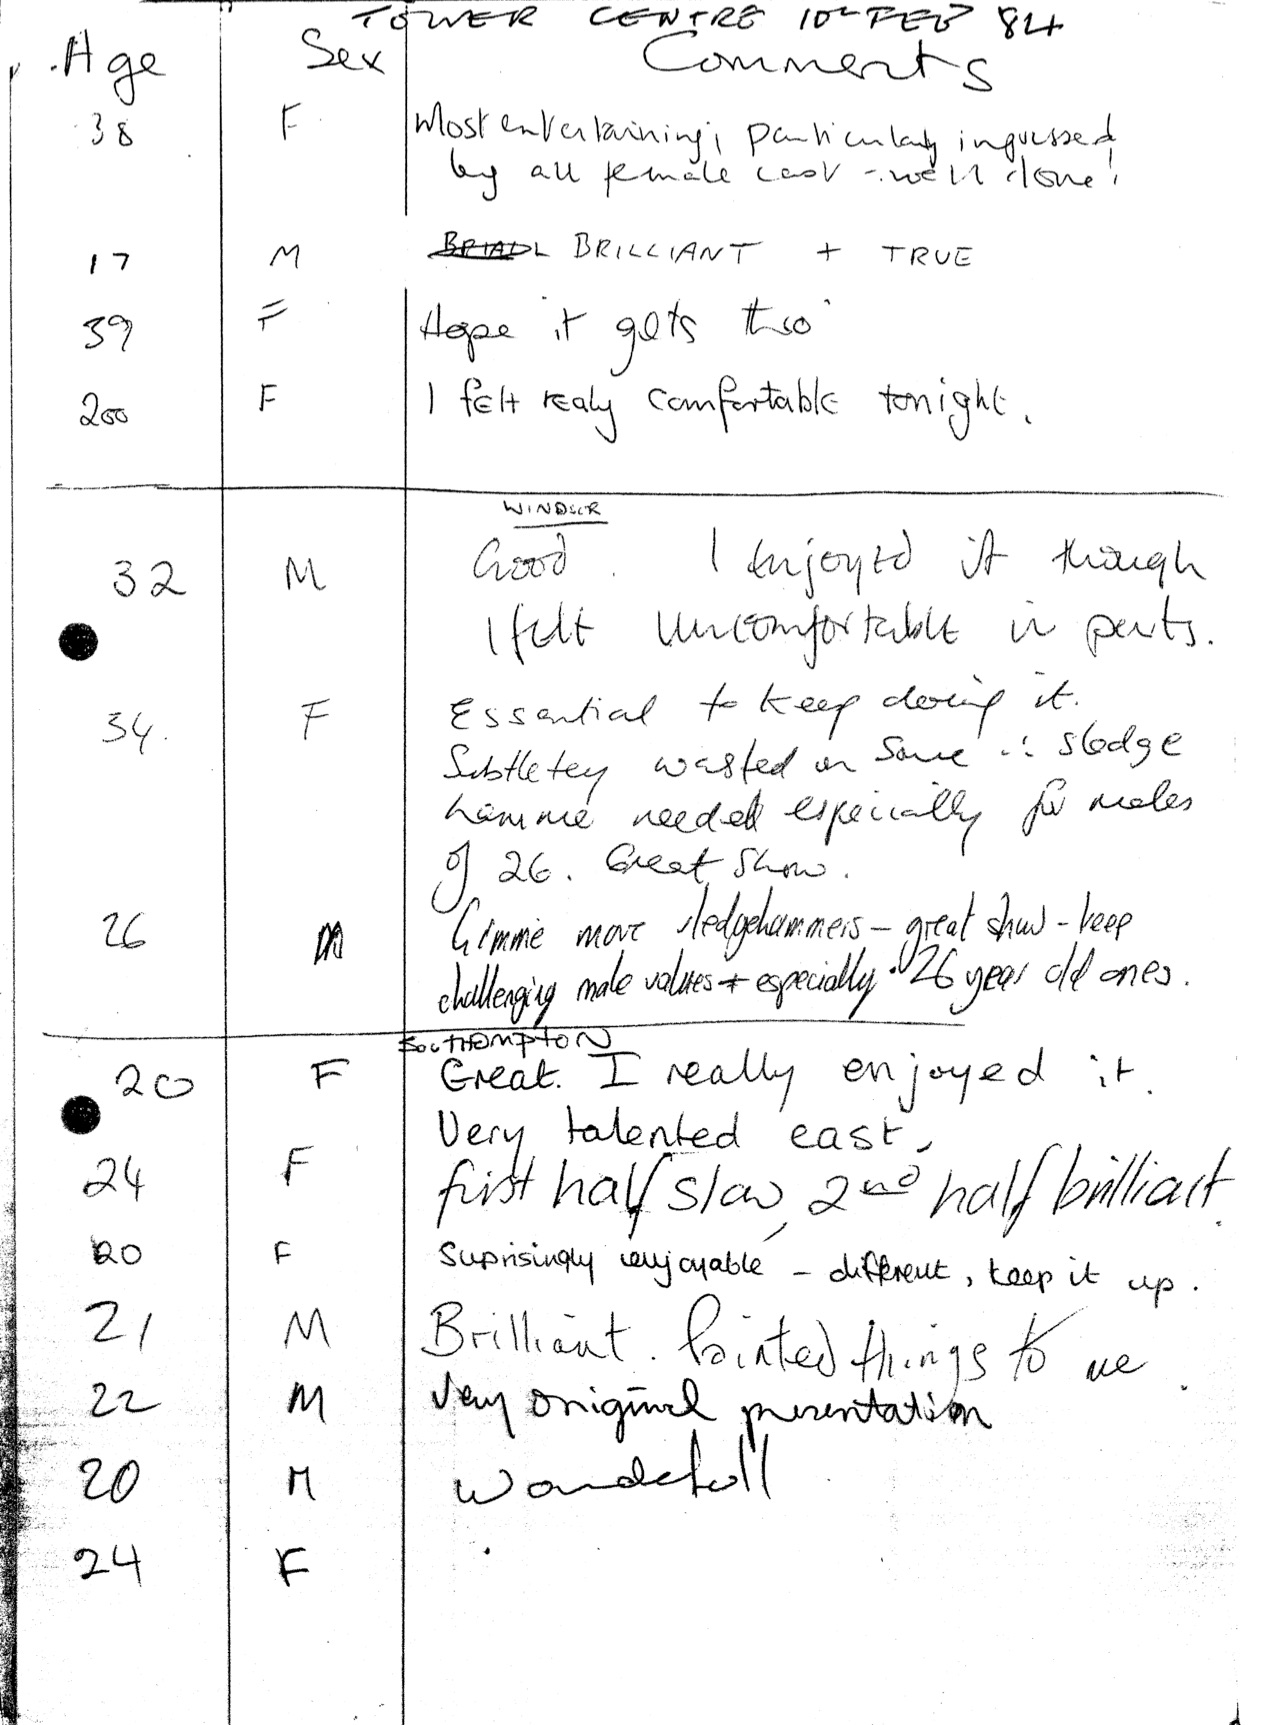 TOWER CENTRE 10th FEB 84
Age Sex Comments
38 F Most entertaining, particularly impressed
by all female cast - well done!
17 M BRILLIANT + TRUE
39 F Hope it gets thro'
200 F I felt realy comfortable tonight.
WINDSOR
32 M Good. I enjoyed it though
I felt uncomfortable in parts.
34. F Essential to keep doing it.
Subtletey wasted on some ∴ sledge
hammer needed especially for males
of 26. Great Show.
26 M Gimme more sledgehammers - great show - keep
challenging male values + especially 26 year old ones.
SOUTHAMPTON
20 F Great. I really enjoyed it.
Very talented cast.
24 F first half slow, 2nd half brilliant.
20 F Suprisingly enjoyable - different, keep it up.
21 M Brilliant. Pointed things to me.
22 M Very original presentation
20 M Wondefull
24 F